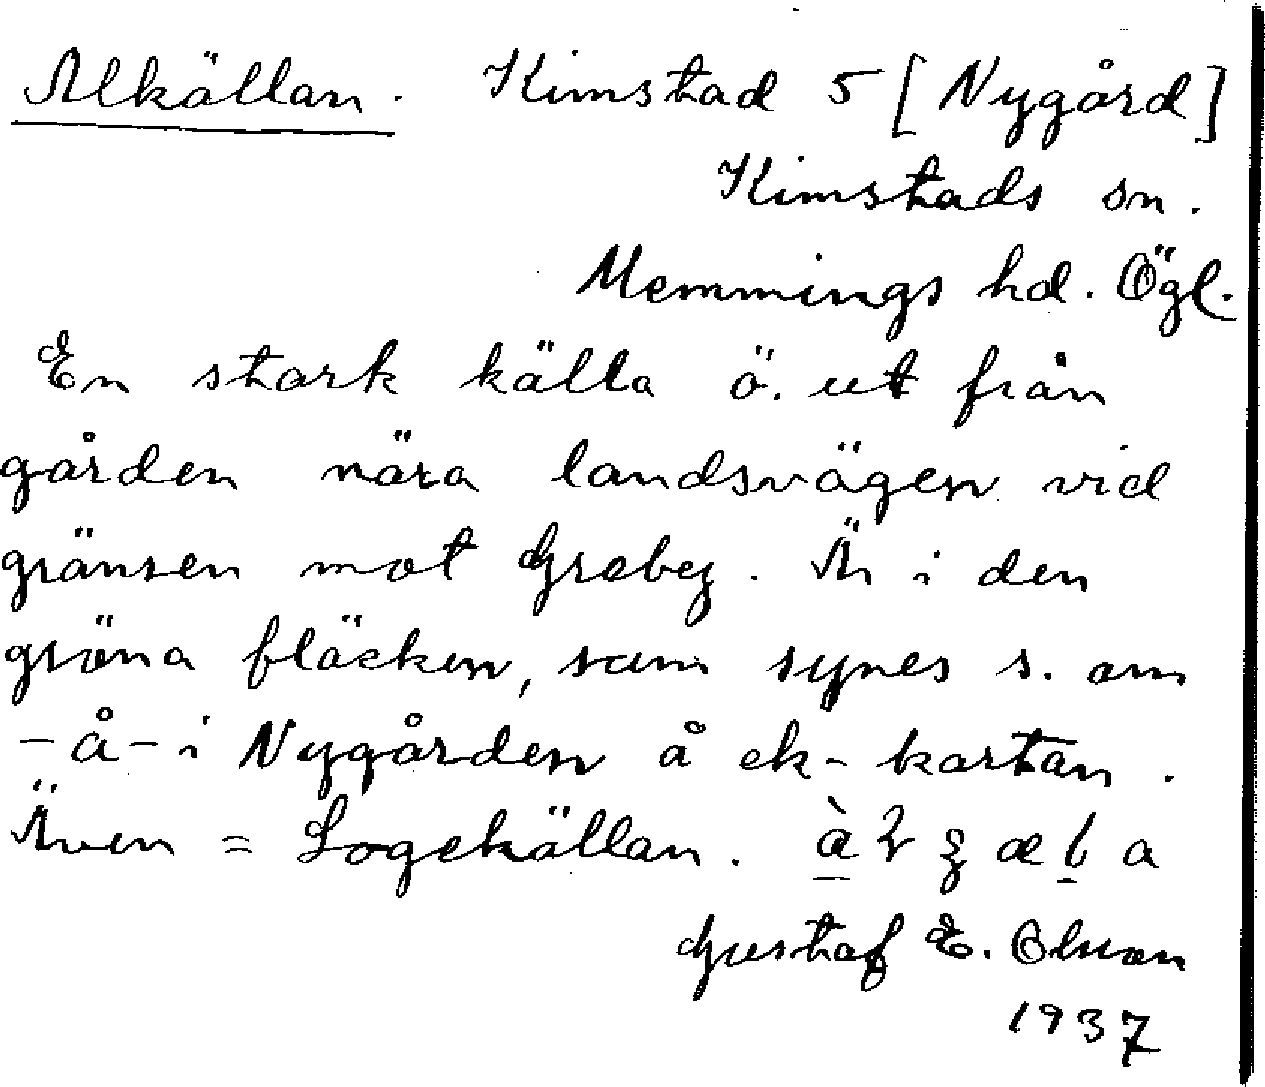 Alkällan. Kimstad 5 [Nygård]
Kimstads sn.
Memmings hd. Ögl.
En stark källa ö. ut från
gården nära landsvägen vid
gränsen mot Greby. Är i den
gröna fläcken, som synes s. om
-å- i Nygården å ek-kartan.
Även = Logekällan.
Gustaf E. Olson
1937